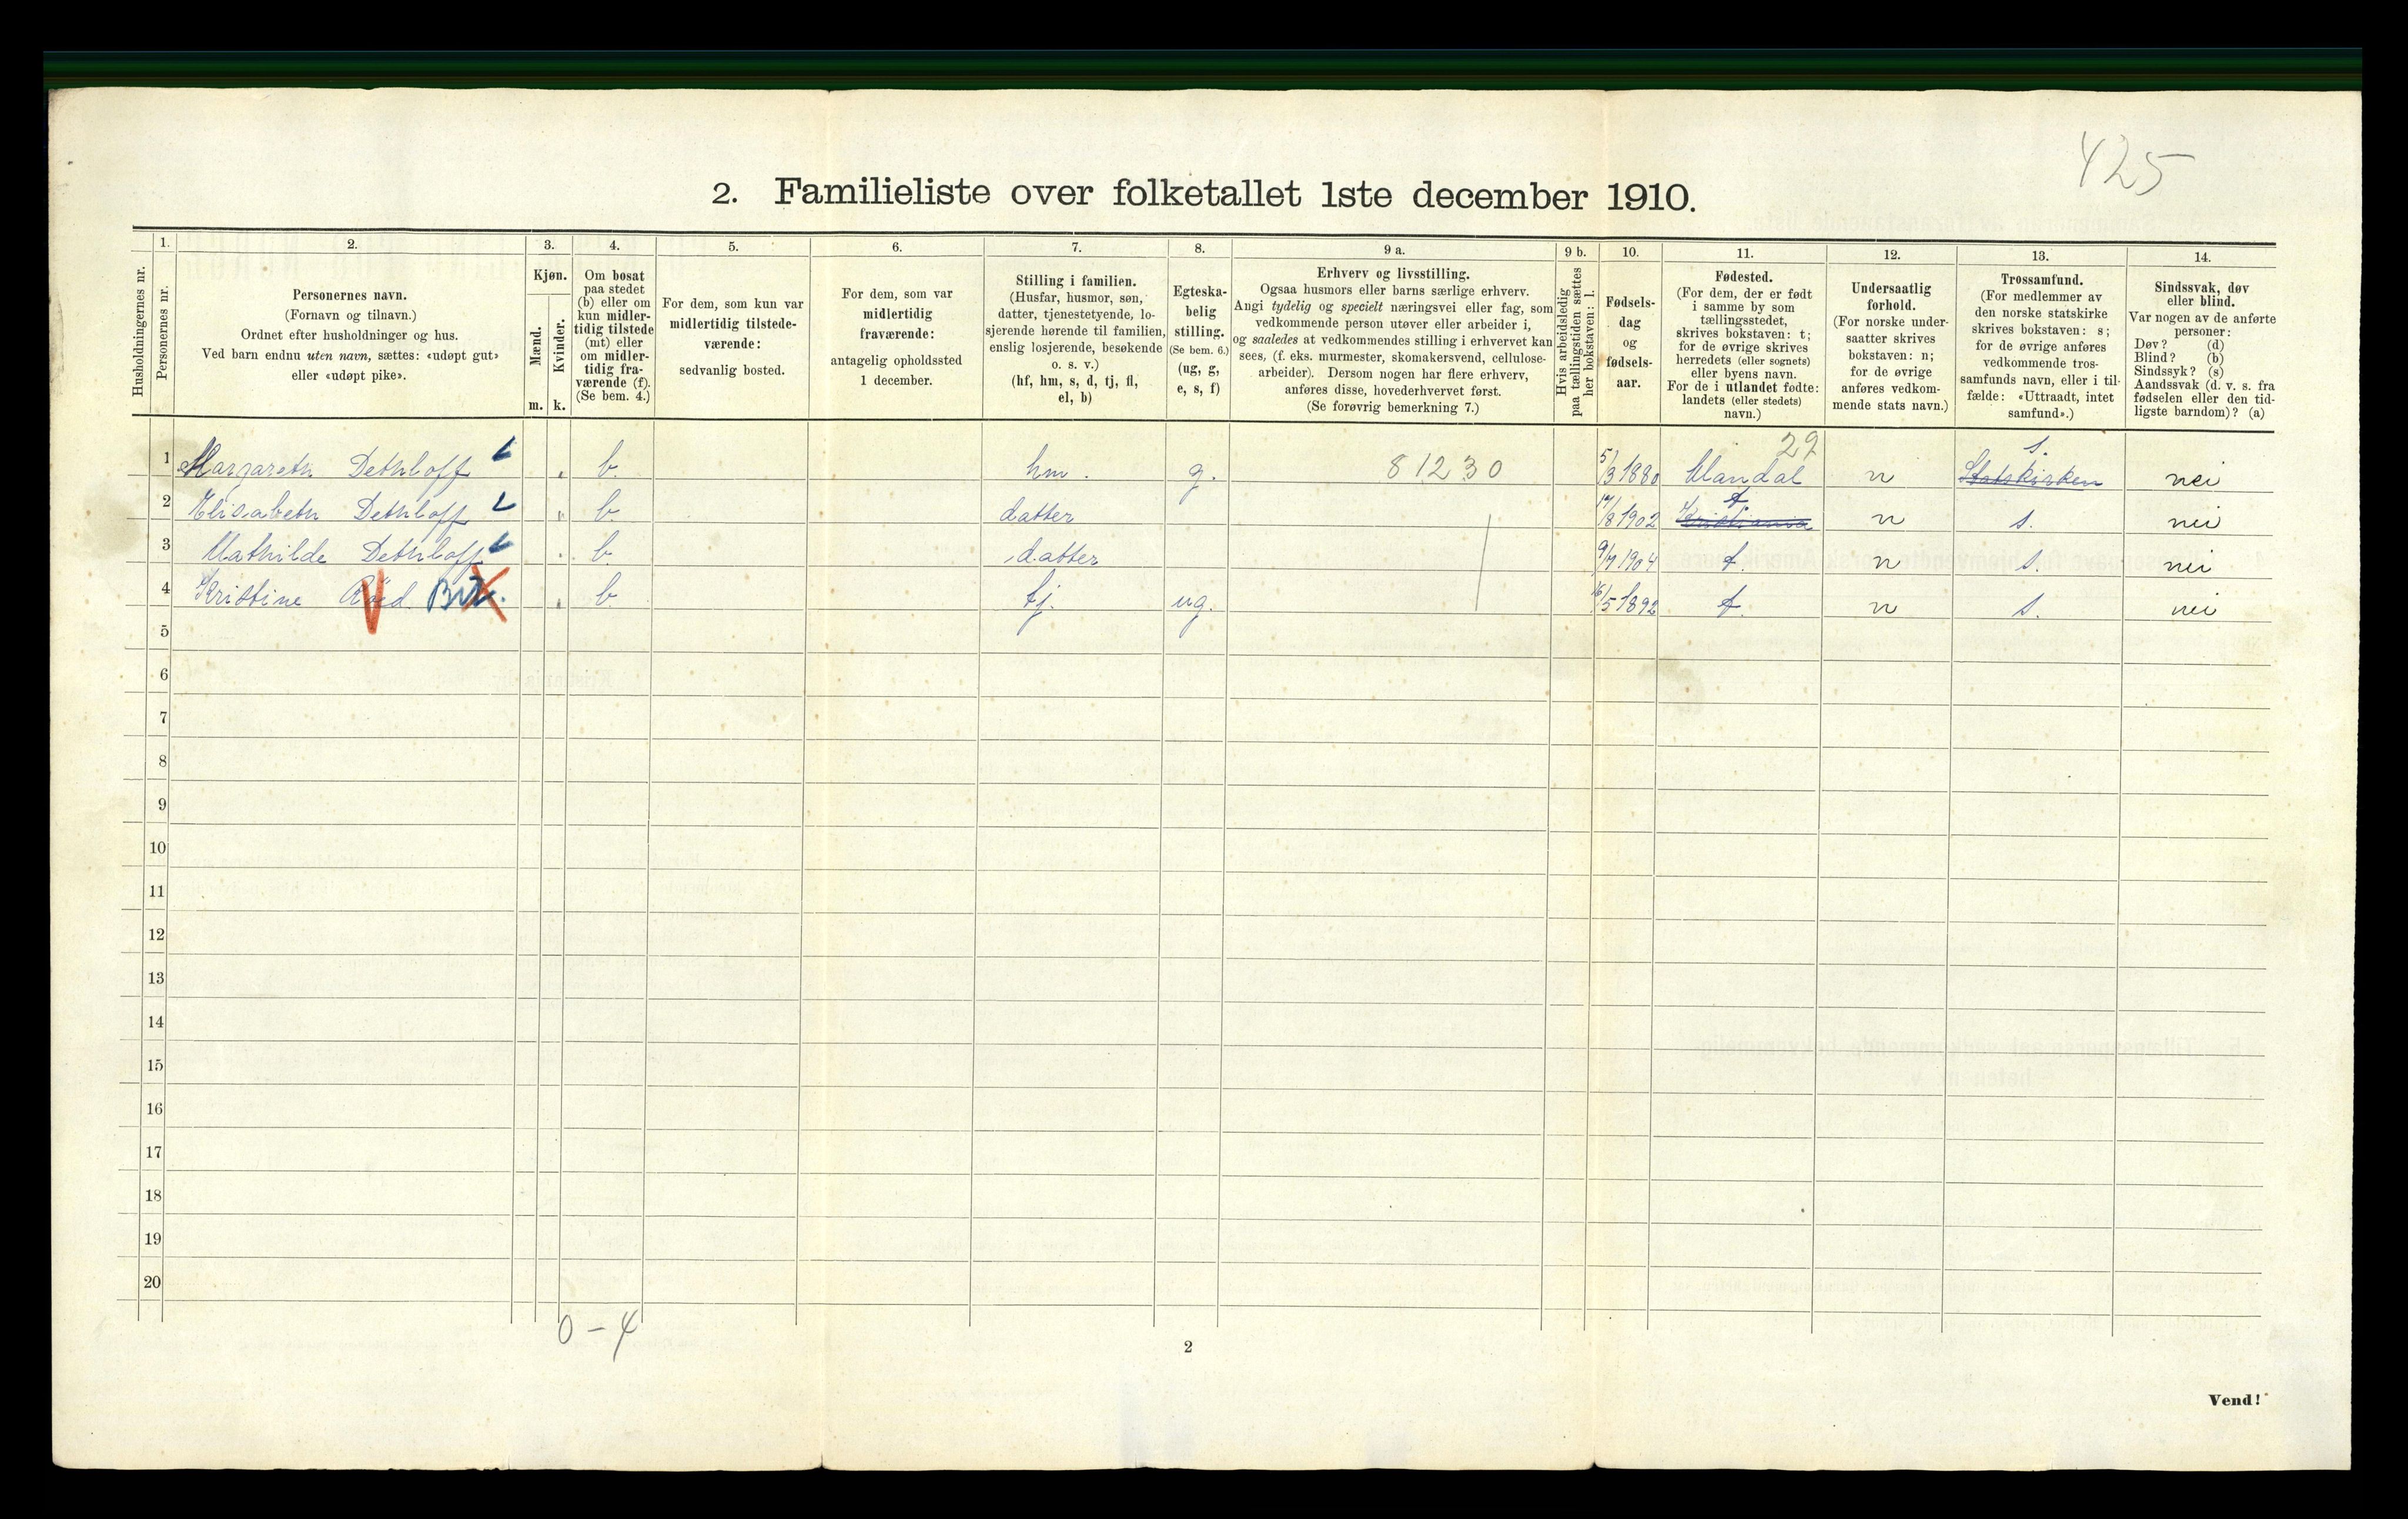 425
2. Familieliste over folketallet 1ste december 1910.
Husholdningernes nr.
1. Personernes nr.
2. Personernes navn.
(Fornavn og tilnavn.)
Ordnet efter husholdninger og hus.
Ved barn endnu uten navn, sættes: «udøpt gut»
eller «udøpt pike».
3. Kjøn.
Mænd. m.
Kvinder. k.
4. Om bosat
paa stedet
(b) eller om
kun midler-
tidig tilstede
(mt) eller
om midler-
tidig fra-
værende (f).
(Se bem. 4.)
5. For dem, som kun var
midlertidig tilstede-
værende:
sedvanlig bosted.
6. For dem, som var
midlertidig
fraværende:
antagelig opholdssted
1 december.
7. Stilling i familien.
(Husfar, husmor, søn,
datter, tjenestetyende, lo-
sjerende hørende til familien,
enslig losjerende, besøkende
o. s. v.)
(hf, hm, s, d, tj, fl,
el, b)
8. Egteska-
belig
stilling.
(Se bem. 6.)
(ug, g,
e, s, f)
9 a. Erhverv og livsstilling.
Ogsaa husmors eller barns særlige erhverv.
Angi tydelig og specielt næringsvei eller fag, som
vedkommende person utøver eller arbeider i,
og saaledes at vedkommendes stilling i erhvervet kan
sees, (f. eks. murmester, skomakersvend, cellulose-
arbeider). Dersom nogen har flere erhverv,
anføres disse, hovederhvervet først.
(Se forøvrig bemerkning 7.)
9 b. Hvis arbeidsledig
paa tællingstiden sættes
her bokstaven: l.
10. Fødsels-
dag
og
fødsels-
aar.
11. Fødested.
(For dem, der er født
i samme by som
tællingsstedet,
skrives bokstaven: t;
for de øvrige skrives
herredets (eller sognets)
eller byens navn.
For de i utlandet fødte:
landets (eller stedets)
navn.)
12. Undersaatlig
forhold.
(For norske under-
saatter skrives
bokstaven: n;
for de øvrige
anføres vedkom-
mende stats navn.)
13. Trossamfund.
(For medlemmer av
den norske statskirke
skrives bokstaven: s;
for de øvrige anføres
vedkommende tros-
samfunds navn, eller i til-
fælde: «Uttraadt, intet
samfund».)
14. Sindssvak, døv
eller blind.
Var nogen av de anførte
personer:
Døv? (d)
Blind? (b)
Sindssyk? (s)
Aandssvak (d. v. s. fra
fødselen eller den tid-
ligste barndom)? (a)
29 s.
1 Margareth Dethloff b. hm. g. 81230 5/3 1880 Mandal n Statskirken nei
t
2 Elisabeth Dethloff b. datter 17/8 1902 Kristiania n s. nei
3 Mathilde Dethloff b. datter 9/7 1904 t. n s. nei
4 Kristine Röed b. tj. ug. 16/5 1892 t. n s. nei
5
6
7
8
9
10
11
12
13
14
15
16
17
18
19
20
0 - 4
2
Vend!